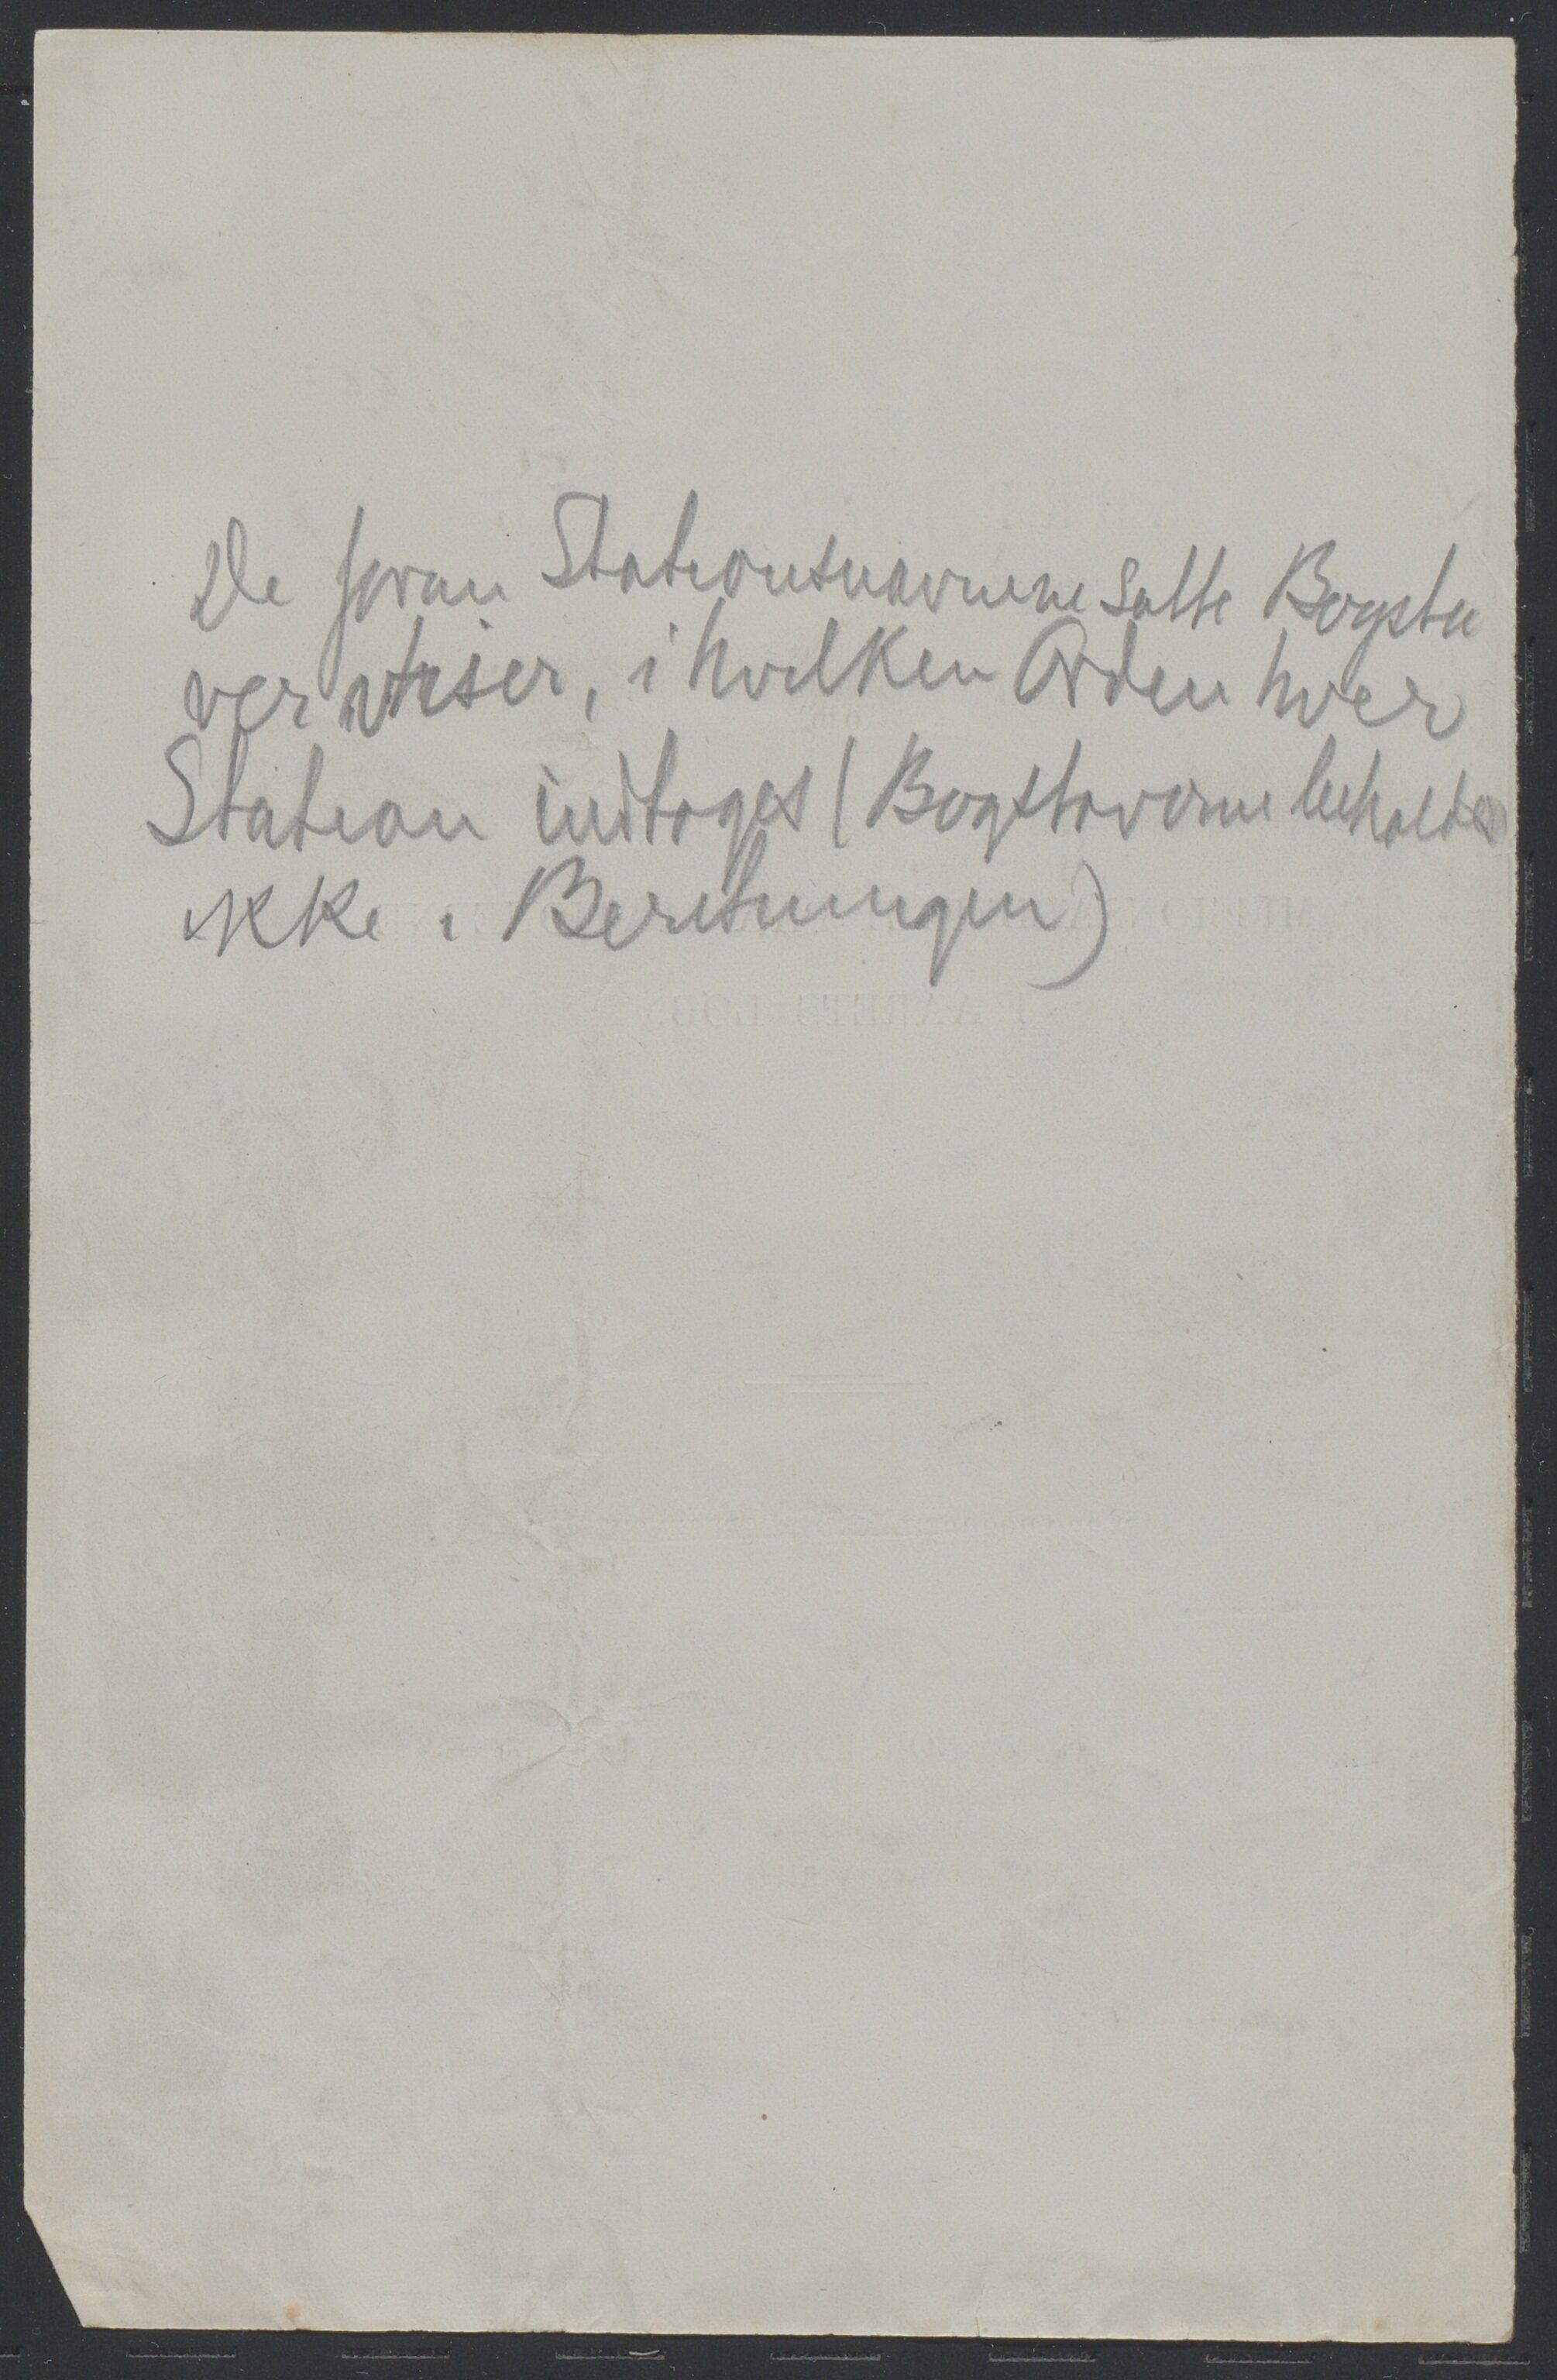 De foran Stationsnavnene satte Bogsta
ver viser, i hvilken Orden hver
Station indtages (Bogstaverne beholdes
ikke i Beretningen)